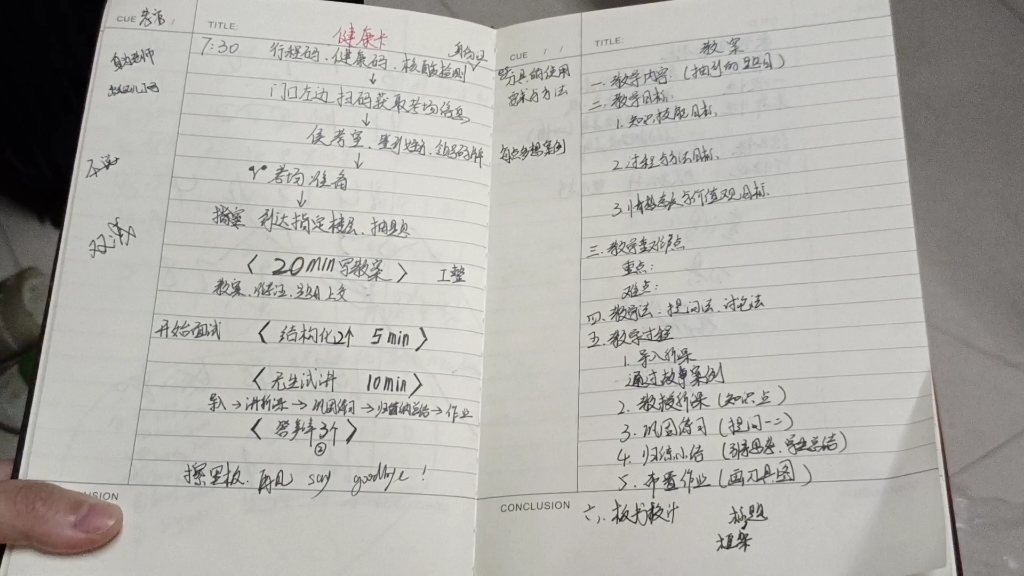 CUE
TITLE
健康卡
7:30 行程码、健康码、核酸检测 身份证
↓
门口左边扫码获取考场信息
↓
候考室
↓
考场准备
↓
到达指定楼层、抽题
〈 20min写教案 〉 工整
教案
开始面试 〈 结构化2个 5min 〉
〈 无生试讲 10min 〉
导入→讲新课→巩固练习→归纳总结→作业
〈 答辩3个 〉
擦黑板、再见 say goodbye!
CONCLUSION
CUE
TITLE:
教案
刀具的使用
要求与方法
每点多想案例
一、教学内容（抽到的题目）
二、教学目标、
1.知识技能目标、
2.过程与方法目标、
3.情感态度与价值观目标、
三、教学重难点
重点：
难点：
四、教学法、提问法、讨论法
五、教学过程
1.导入新课
通过故事案例
2.教授新课（知识点）
3.巩固练习（提问一二）
4.归纳小结
5.布置作业（画刀具图）
CONCLUSION
六、板书设计 标题
框架